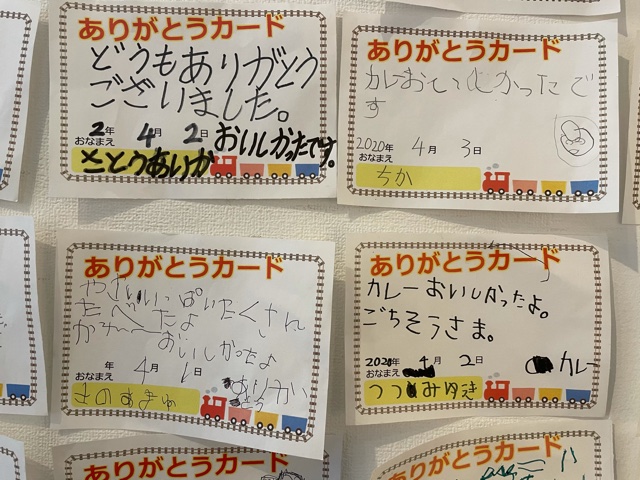 ありがとうカード
どうもありがとう
ございました。
2年 4月 2日 おいしかったです。
おなまえ
さとうあいか
ありがとうカード
カレーおいしかったで
す
2020年 4月 3日
おなまえ
ちか
ありがとうカード
やさいいっぱいたくさん
たべたよ
おいしかったよ
年 4月 1日
おなまえ
ありがとうカード
カレーおいしかったよ。
ごちそうさま。
2020年 4月 2日 カレー
おなまえ
つつみみゆき
ありがとうカード
ありがとうカード